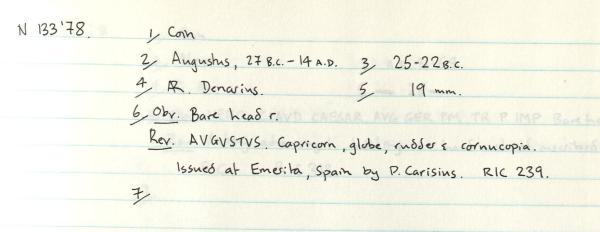 N 133'78. 1, Coin
2, Augustus, 27 B.C. - 14 A.D. 3, 25-22 B.C.
4, AR. Denarius. 5, 19 mm.
6, Obv. Bare head r.
Rev. AVGVSTVS. Capricorn, globe, rudder & cornucopia.
Issued at Emerita, Spain by P. Carisius. RIC 239.
7,